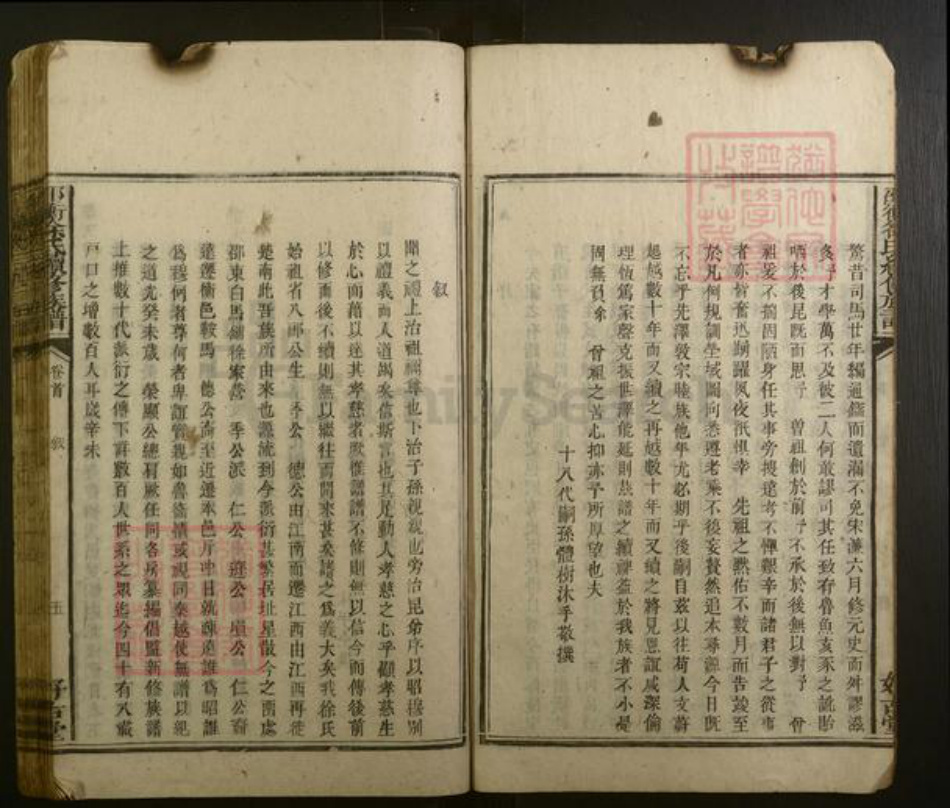 驚昔司馬廿年獨通鑑而遺漏不免宋濂六月修元史而舛謬滋
多予才學萬不及彼二人何敢謬司其任致有魯魚亥豕之訛貽
哂於後昆既而思予 曾祖創於前予不承於後無以對予 曾
祖爰不揣固陋身任其事旁搜遠考不憚艱辛而諸君子之從事
者亦皆奮迅踴躍夙夜祇懼幸 先祖之默佑不數月而告竣至
於凡例規訓塋域圖向悉遵老乘不後妄贅然追本尋源今日既
不忘乎先澤敦宗睦族他年尤必期乎後嗣自茲以往荷人文蔚
起越數十年而又續之再越數十年而又續之將見恩誼咸深倫
理恒篤家聲克振世澤能延則是譜之續裨益於我族者不小是
固無負余 曾祖之苦心抑亦予所厚望也夫
十八代嗣孫體樹沐手敬撰
好古堂
敘
聞之禮上治祖禰尊尊也下治子孫親親也旁治昆弟序以昭穆別
以禮義而人道竭矣信斯言也其足動人孝慈之心乎顧孝慈生
於心而藉以達其孝慈者厥惟譜譜不修則無以信今而傳後前
以修而後不續則無以繼往而開來甚矣譜之為義大矣我徐氏
始祖省八郎公生 季公 德公由江南而遷江西由江西再徙
楚南此吾族所由來也源流到今派衍甚繁居址星散今之南處
邵東白馬舖徐家營 季公派 仁公 廷公 瑄公 仁公裔
遠遷衡邑鞍馬 德公裔至近遷本邑斤中日就疎遠誰為昭誰
為穆何者尊何者卑誼管親如魯衛情或視同秦越使無譜以紀
之道光癸未歲 榮顯公總肩厥任同各房纂編倡監新修族譜
上推數十代派衍之傳下詳數百人世系之眾迄今四十有八歲
戶口之增數百人耳歲辛未
邵衡徐氏續修族譜
卷首
敘
五
好古堂